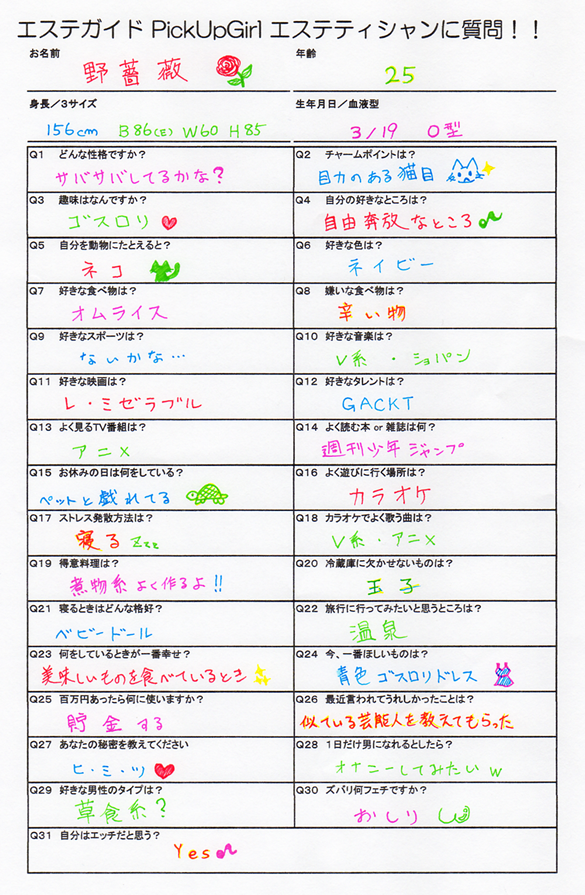 エステガイド PickUpGirl エステティシャンに質問！！
お名前
野薔薇
年齢
25
身長／3サイズ
156cm B86(E) W60 H85
生年月日／血液型
3/19 O型
Q1 どんな性格ですか？
サバサバしてるかな？
Q2 チャームポイントは？
目力のある猫目
Q3 趣味はなんですか？
ゴスロリ
Q4 自分の好きなところは？
自由奔放なところ
Q5 自分を動物にたとえると？
ネコ
Q6 好きな色は？
ネイビー
Q7 好きな食べ物は？
オムライス
Q8 嫌いな食べ物は？
辛い物
Q9 好きなスポーツは？
ないかな…
Q10 好きな音楽は？
V系・ショパン
Q11 好きな映画は？
レ・ミゼラブル
Q12 好きなタレントは？
GACKT
Q13 よく見るTV番組は？
アニメ
Q14 よく読む本 or 雑誌は何？
週刊少年ジャンプ
Q15 お休みの日は何をしている？
ペットと戯れてる
Q16 よく遊びに行く場所は？
カラオケ
Q17 ストレス発散方法は？
寝る Zzz
Q18 カラオケでよく歌う曲は？
V系・アニメ
Q19 得意料理は？
煮物系 よく作るよ!!
Q20 冷蔵庫に欠かせないものは？
玉子
Q21 寝るときはどんな格好？
ベビードール
Q22 旅行に行ってみたいと思うところは？
温泉
Q23 何をしているときが一番幸せ？
美味しいものを食べているとき
Q24 今、一番ほしいものは？
青色ゴスロリドレス
Q25 百万円あったら何に使いますか？
貯金する
Q26 最近言われてうれしかったことは？
似ている芸能人を教えてもらった
Q27 あなたの秘密を教えてください
ヒ・ミ・ツ
Q28 1日だけ男になれるとしたら？
オナニーしてみたいw
Q29 好きな男性のタイプは？
草食系？
Q30 ズバリ何フェチですか？
おしり
Q31 自分はエッチだと思う？
Yes